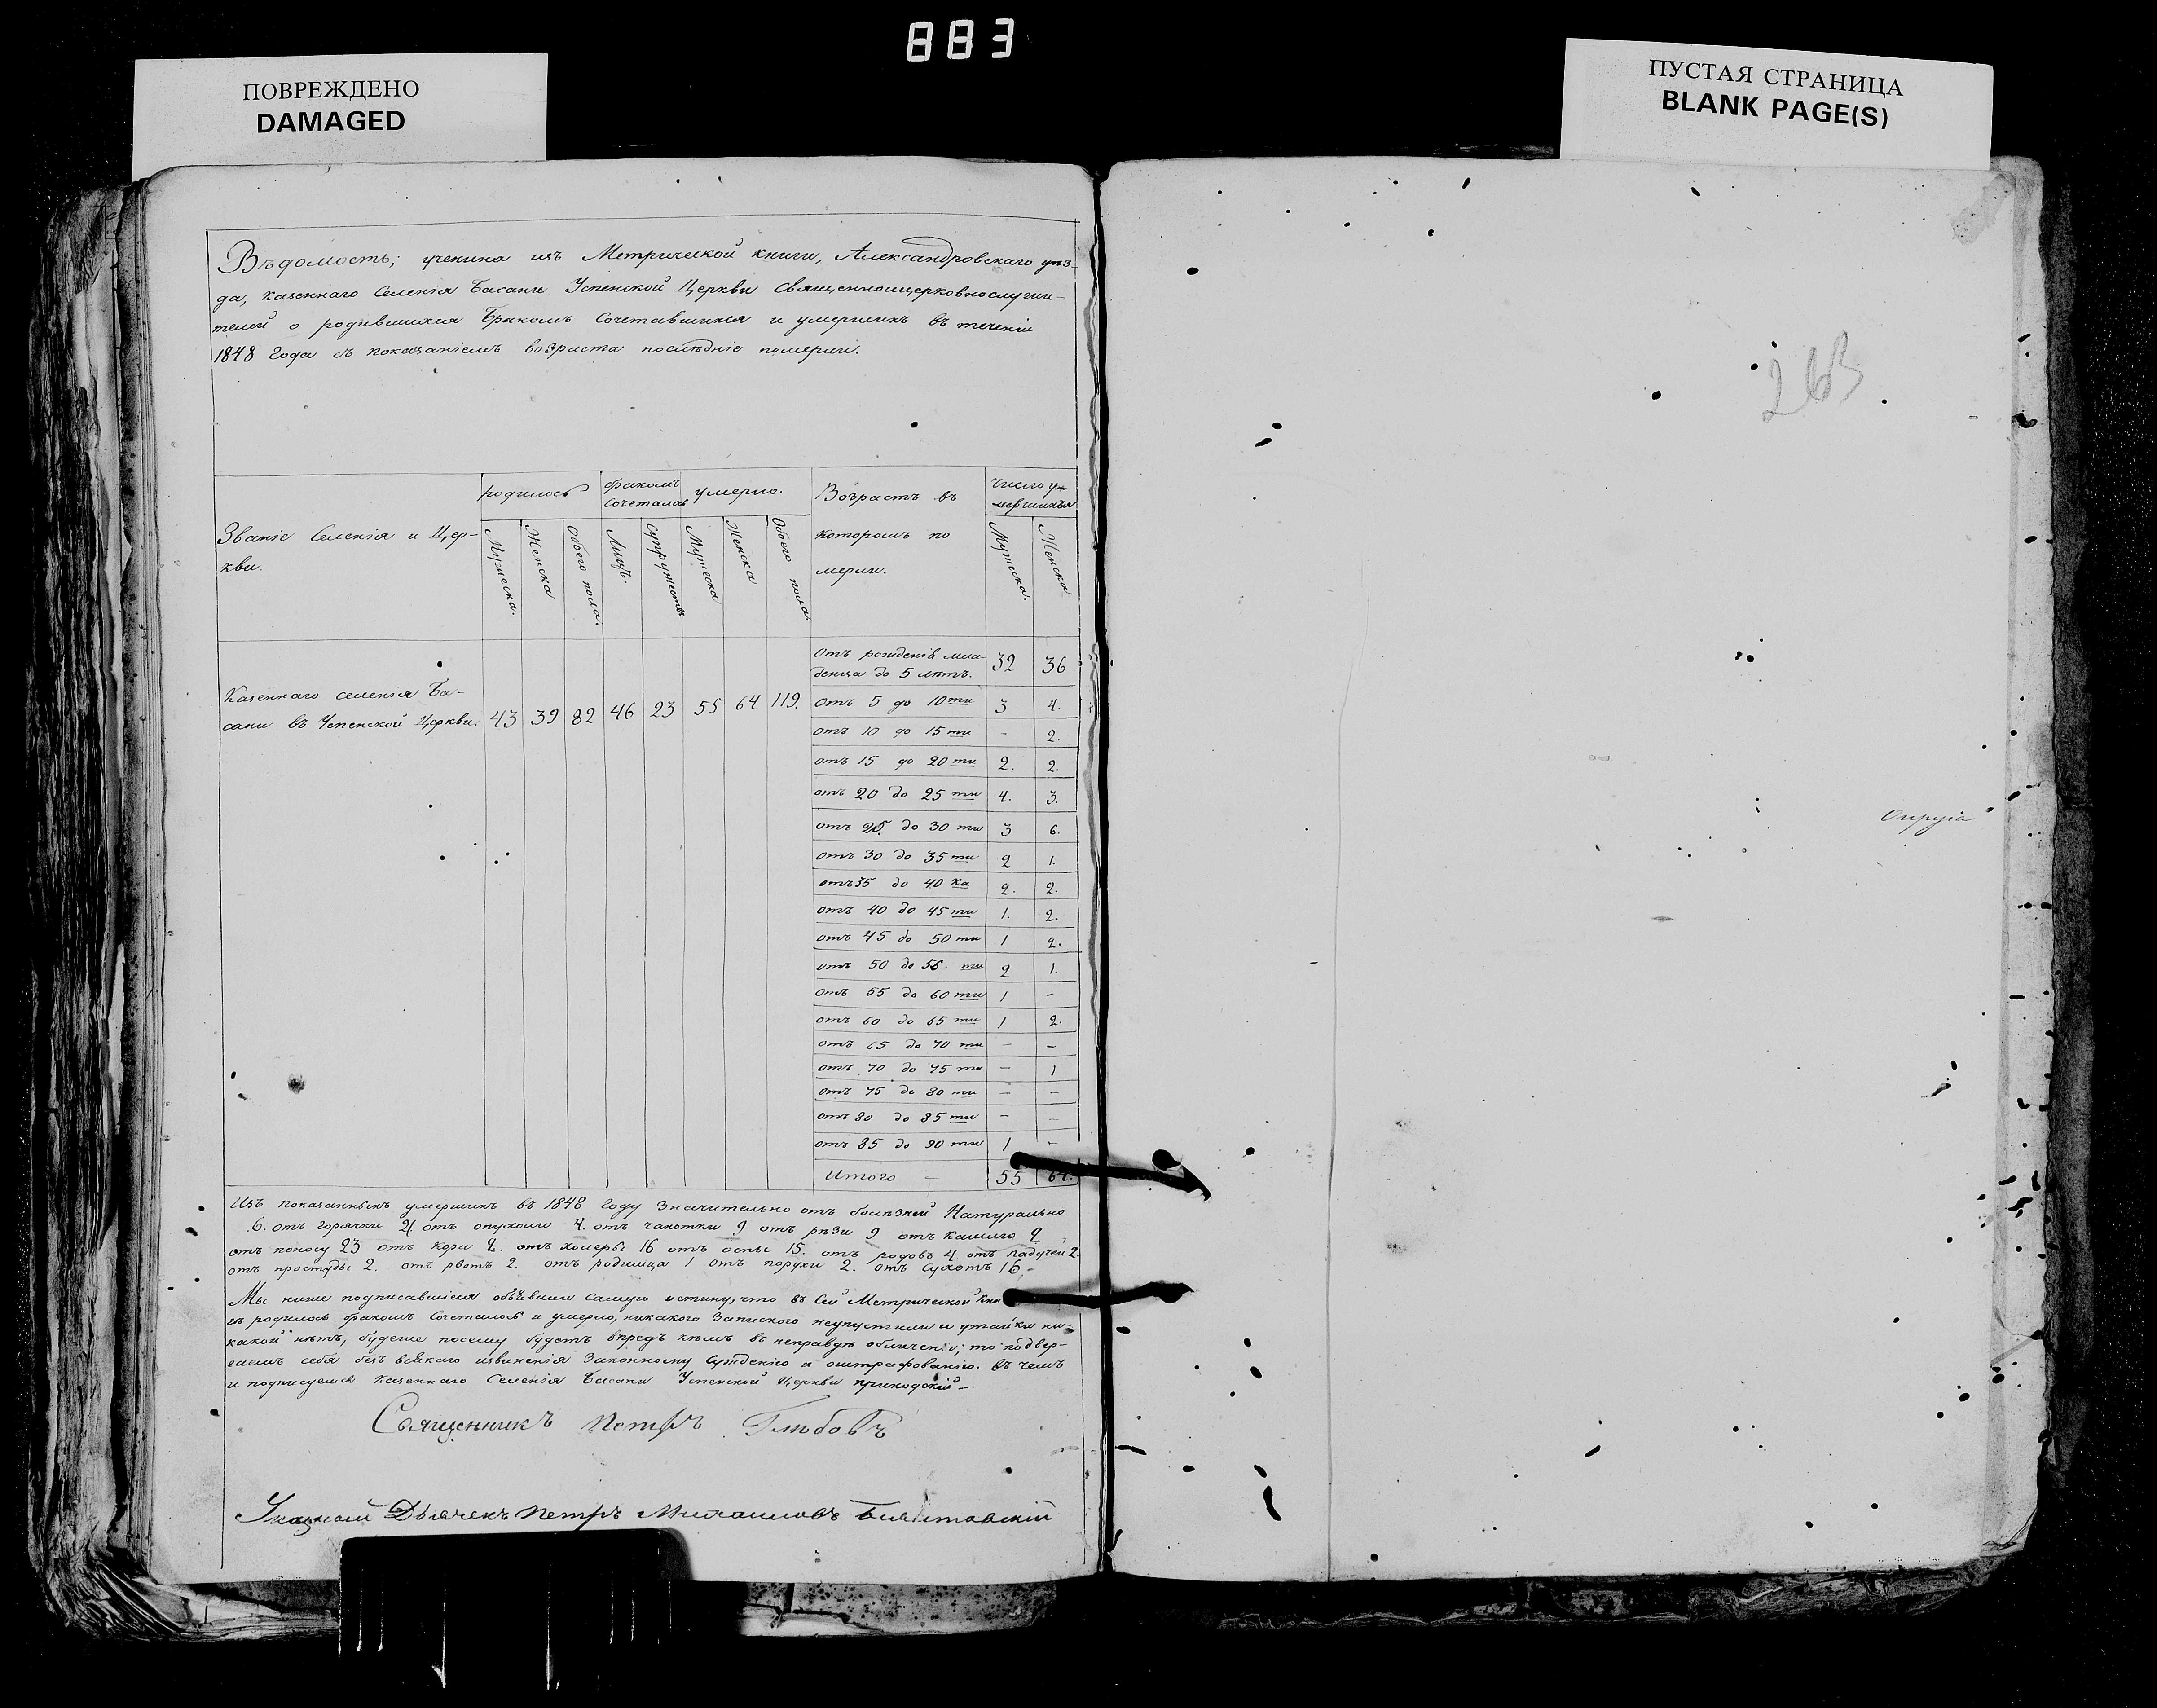 883
ПОВРЕЖДЕНО
DAMAGED
ПУСТАЯ СТРАНИЦА
BLANK PAGE(S)
Вѣдомость, учинина изъ Метрической книги, Александровскаго уѣз-
да, казеннаго Селенія Басани Успенской Церкви Священноицерковнослужи-
телей о родившихся Бракомъ Сочетавшихся и умершихъ въ теченіи
1848 года съ показаніемъ возраста послѣдніе померли.
Званіе Селенія и Цер-
кви.
родилось
Мужеска.
Женска
Обоего пола.
браком
Сочеталов
Лицъ.
Супружеств
умерло.
Мужеска
Женска
Обоего пола
Возрастъ въ
которомъ по
мерли.
Число у-
мершихъ
Мужеска.
Женска
Казеннаго селенія Ба-
сани въ Успенской Церкви. 43 39 82 46 23 55 64 119.
Отъ рожденія мла-
денца до 5 лѣтъ. 32 36
отъ 5 до 10ти 3 4.
отъ 10 до 15ти - 2.
отъ 15 до 20ти 2. 2.
отъ 20 до 25ти 4. 3.
отъ 25 до 30ти 3 6.
отъ 30 до 35ти 2 1.
отъ 35 до 40ка 2. 2.
отъ 40 до 45ти 1. 2.
отъ 45 до 50ти 1 2.
отъ 50 до 55. ти 2 1.
отъ 55 до 60ти 1 -
отъ 60 до 65ти 1 2.
отъ 65 до 70ти - -
отъ 70 до 75ти - 1
отъ 75 до 80ти - -
отъ 80 до 85ти - -
отъ 85 до 90ти 1 -
Итого - 55 64.
Изъ показанныхъ умершихъ въ 1848 Году Значительно отъ болѣзней Натурально
6. отъ горячки 21 отъ опухоли 4. отъ чахотки 9 отъ рѣзи 9 отъ Кашлю 2
отъ поносу 23 отъ Кори 2. отъ холеры 16 отъ оспы 15. отъ родовъ 4 отъ падучей 2.
отъ простуды 2. отъ рвотъ 2. отъ родимца 1 отъ порухи 2. отъ Сухотъ 16.
Мы ниже подписавшіеся объявили Самую истину, что въ Сей Метрической Кни
гѣ родилось браком Сочеталось и умерло, никакого Записного неупустили и утайки ни-
какой нѣтъ, будеже посему будетъ впредъ кѣмъ въ неправдѣ обличені; то подвер-
гаемъ себя безъ всякаго извиненія Законному сужденію и оштрафованію. въ чемъ
и подписуемся Казеннаго Селенія Басани Успенской Церкви приходскій -
Священникъ Петръ Глѣбовъ
Указной Дьячекъ Петръ Михаиловъ
263